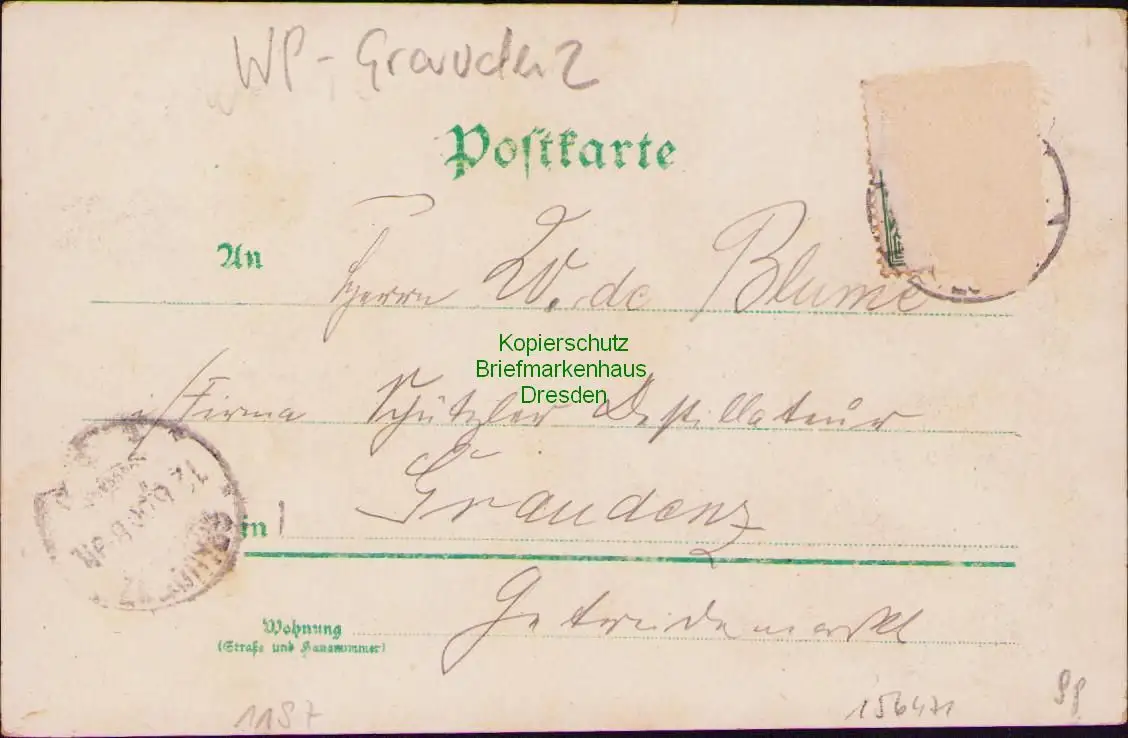 WP - Graudenz
Postkarte
An
Herrn W. de Blume
Kopierschutz
Briefmarkenhaus
Dresden
i/Firma Schützler Destillateur
in Graudenz
Getreidemarkt
Wohnung
(Straße und Hausnummer)
1197
156471